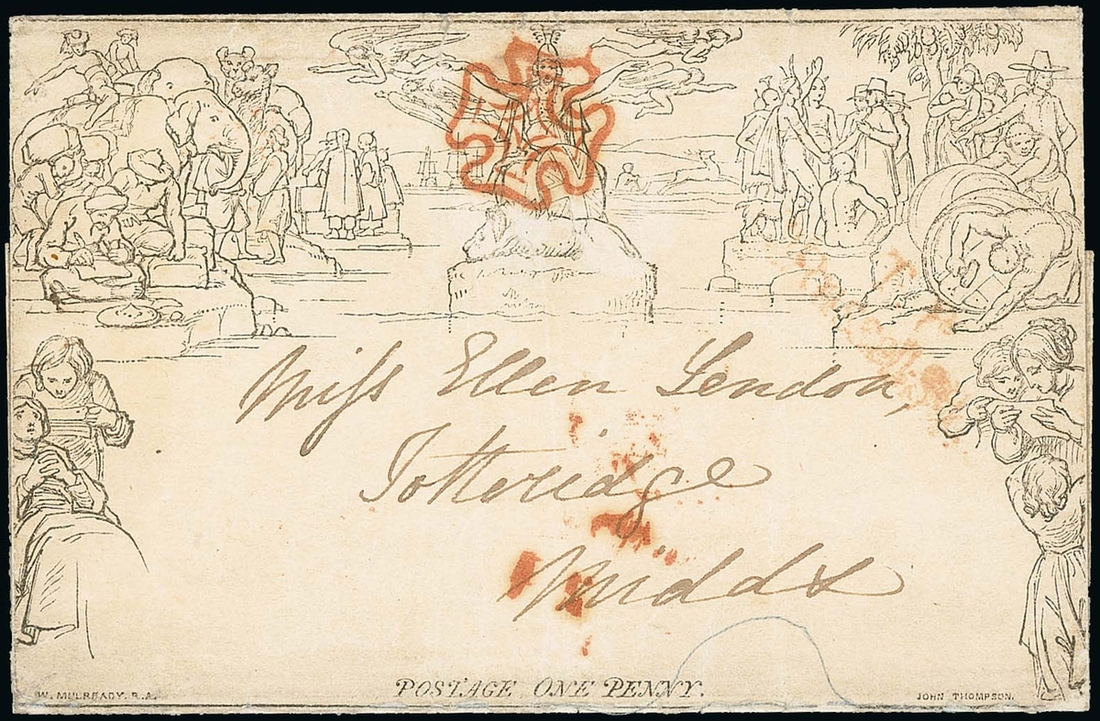 Miss Ellen Lendon,
Totteridge
Midds
W. MULREADY. R.A.
POSTAGE ONE PENNY.
JOHN THOMPSON.